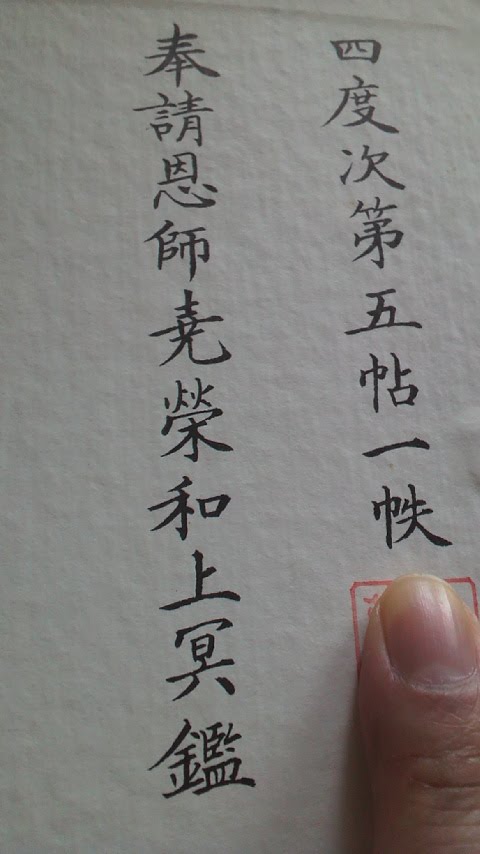 四度次第五帖一帙
奉請恩師尭榮和上冥鑑